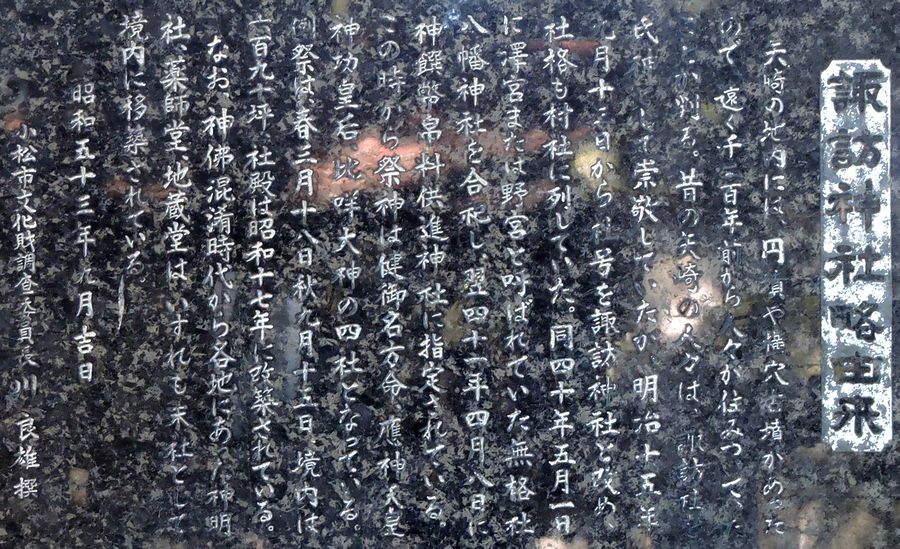 諏訪神社略由来
矢崎の地内には円墳や横穴古墳があった
ので 遠く千二百年前から人々が住みついてた
ことが判る。昔の矢崎の人々は、諏訪社を
氏神として崇敬していたが、明治十五年
九月十三日から社号を諏訪神社と改め、
社格も村社に列していた。同四十年五月一日
に澤宮または野宮と呼ばれていた無格社
八幡神社を合祀し、翌四十一年四月八日に
神饌幣帛料供進神社に指定されている。
この時から祭神は健御名方命、應神天皇
神功皇后、比咩大神の四社となっている。
例祭は、春三月十八日秋九月十三日、境内は
二百九十坪 社殿は昭和十七年に改築されている。
なお、神佛混淆時代から各地にあった神明
社、薬師堂、地蔵堂はいずれも末社として
境内に移築されている。
昭和五十三年九月吉日
小松市文化財調査委員長 川良雄 撰